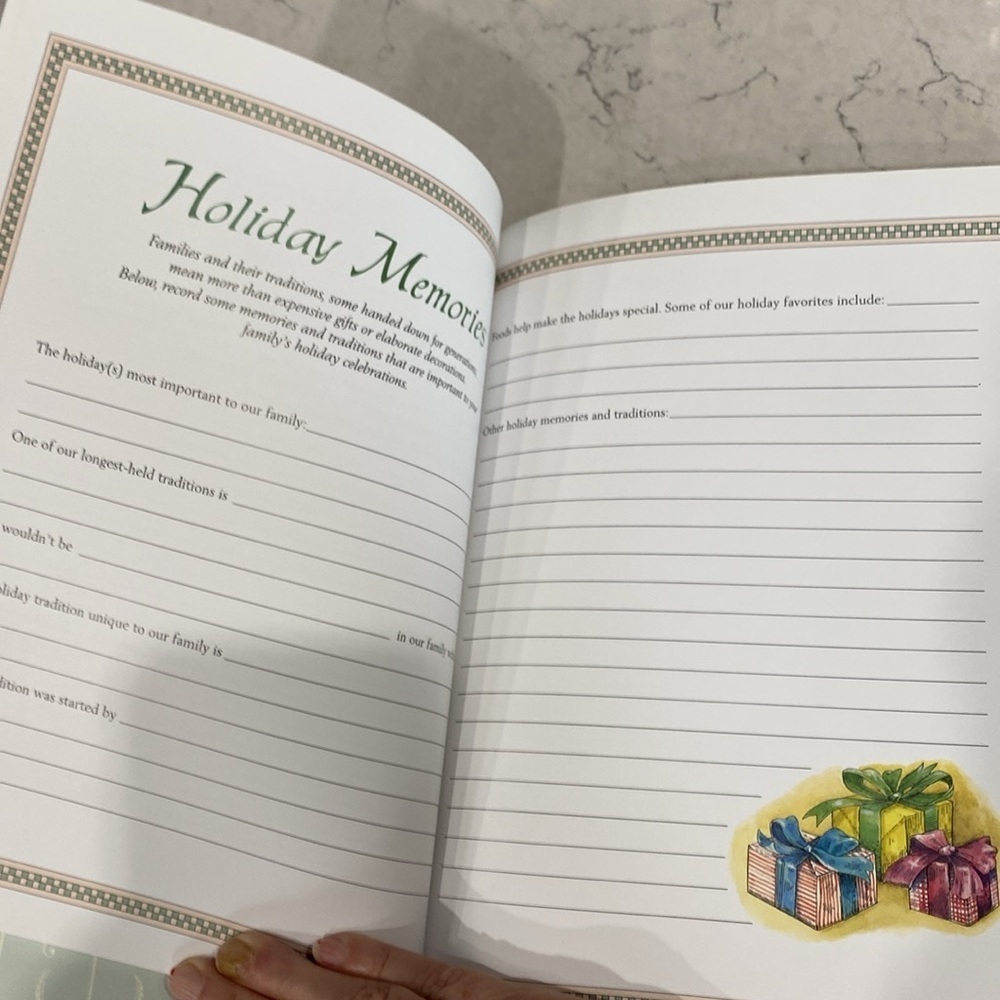 Holiday Memories
Families and their traditions, some handed down for generations,
mean more than expensive gifts or elaborate decorations.
Below, record some memories and traditions that are important to your
family's holiday celebrations.
The holiday(s) most important to our family:
One of our longest-held traditions is
wouldn't be
in our family
tradition unique to our family is
was started by
Foods help make the holidays special. Some of our holiday favorites include:
.
Other holiday memories and traditions: